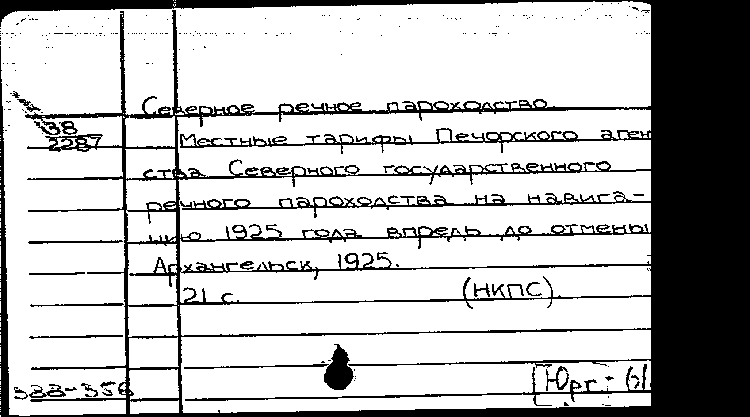 Северное речное пароходство.
38
2287
Местные тарифы Печорского аген
ства Северного государственного
речного пароходства на навига-
цию 1925 года впредь до отмены
Архангельск, 1925.
21 с. (НКПС).
388-356